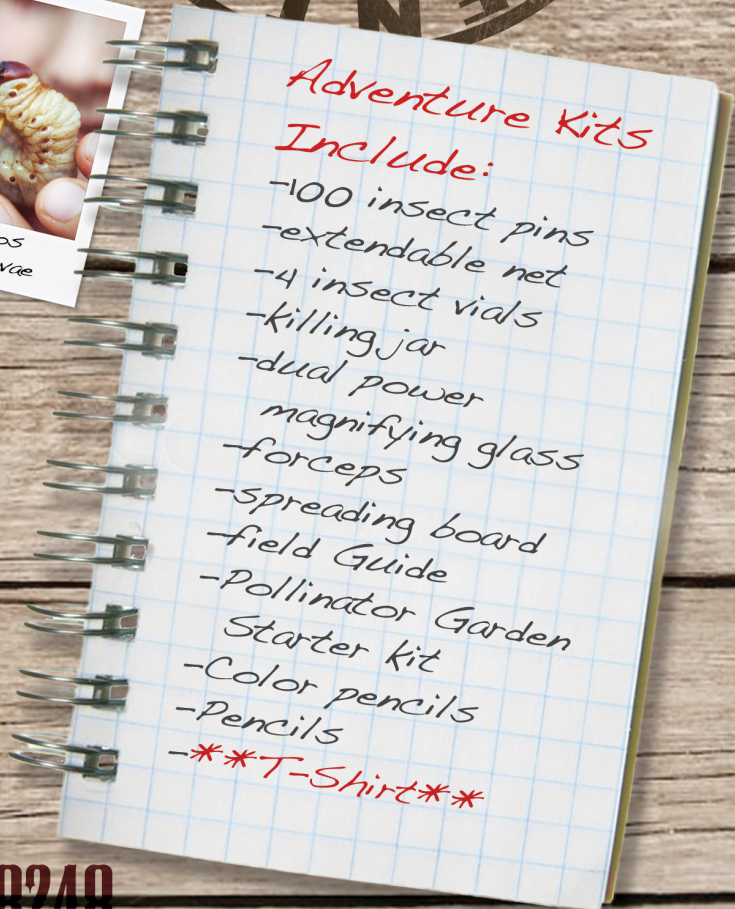 Adventure Kits
Include:
-100 insect pins
-extendable net
-4 insect vials
-killing jar
-dual power
magnifying glass
-forceps
-spreading board
-field Guide
-Pollinator Garden
Starter kit
-Color pencils
-Pencils
-**T-Shirt**